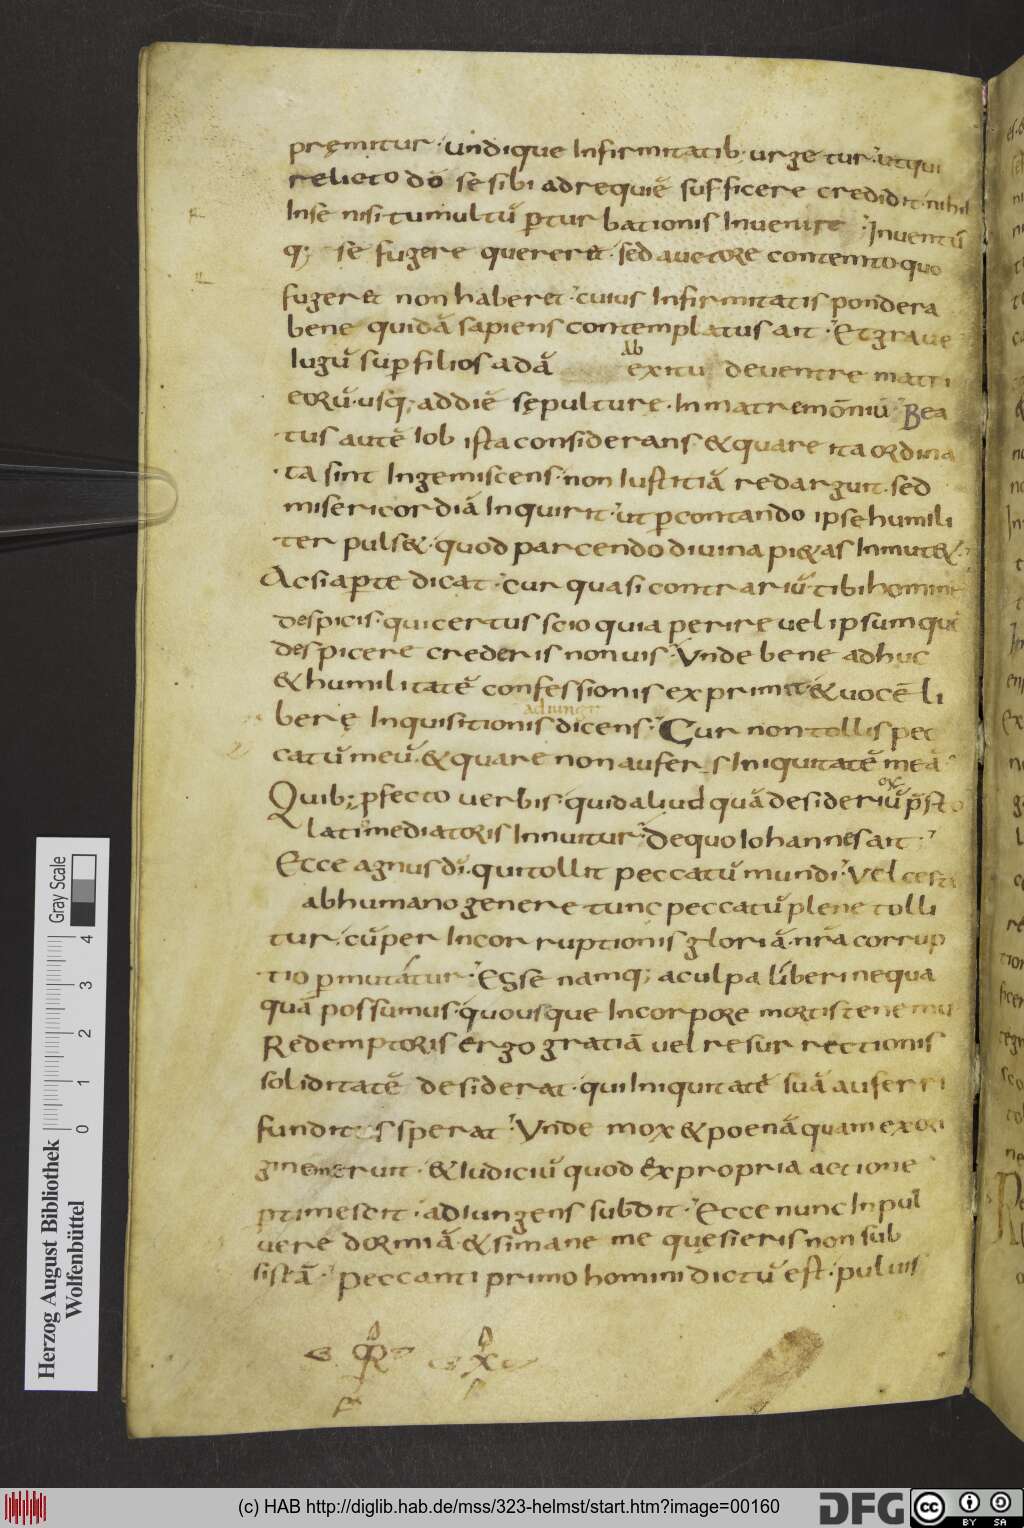 pręmitur · undique Infirmitatib; urgetur · ut qui
relicto dō se sibi ad requiē sufficere credidit · nihil
Inse nisi tumultū ꝑturbationis Invenire · Inventū
q; se fugere quereret · sed auctore contempto quo
fugeret non haberet · cuius Infirmitatis pondera
bene quidā sapiens contemplatus ait · Et grave
Iugū suꝑ filios adā
ab
exitu deventre matri
eorū · usq; ad diē sępulture · In matrem omniū · Bea
tus autē Iob ista considerans · & quare ita ordina
ta sint Ingemiscens · non Iustitiā redarguit · sed
misericordiā Inquirit · ut ꝑcontando ipse humili
ter puls& · quod parcendo divina pi&as Inmut& ·
Ac si aꝑte dicat · Cur quasi contrariū tibi homine
despicis · qui certus scio quia perire vel ipsum quē
despicere crederis non vis · Unde bene adhuc
& humilitatē confessionis exprimit · & vocē li
berę Inquisitionis
adiungit
dicens · Cur non tollis pec
catū meū · & quare non aufers Iniquitatē meā
Quib; ꝑfecto verbis quid aliud quā desideriū p̄sto
lati mediatoris Innuitur · De quo Iohannes ait ·
Ecce agnus dī · qui tollit peccatū mundi · Vel certe
ab humano genere tunc peccatū plene tolli
tur · cū per Incorruptionis gloriā · nr̄a corrup
tio ꝑmutatur · Esse namq; a culpa liberi nequa
quā possumus · quousque In corpore mortis tenemur
Redemptoris ergo gratiā vel resurrectionis
soliditatē desiderat · qui Iniquitatē suā auferri
funditus sperat · Unde mox & poenā quam ex ori
gine meruit · & Iudiciū quod ex propria actione
ꝑtimescit · adIungens subdit · Ecce nunc In pul
vere dormiā · & si mane me quęsieris non sub
sistā · Peccanti primo homini dictū est · pulvis
Herzog August Bibliothek
Wolfenbüttel
0 1 2 3 4
Gray Scale
(c) HAB http://diglib.hab.de/mss/323-helmst/start.htm?image=00160
DFG
cc BY SA